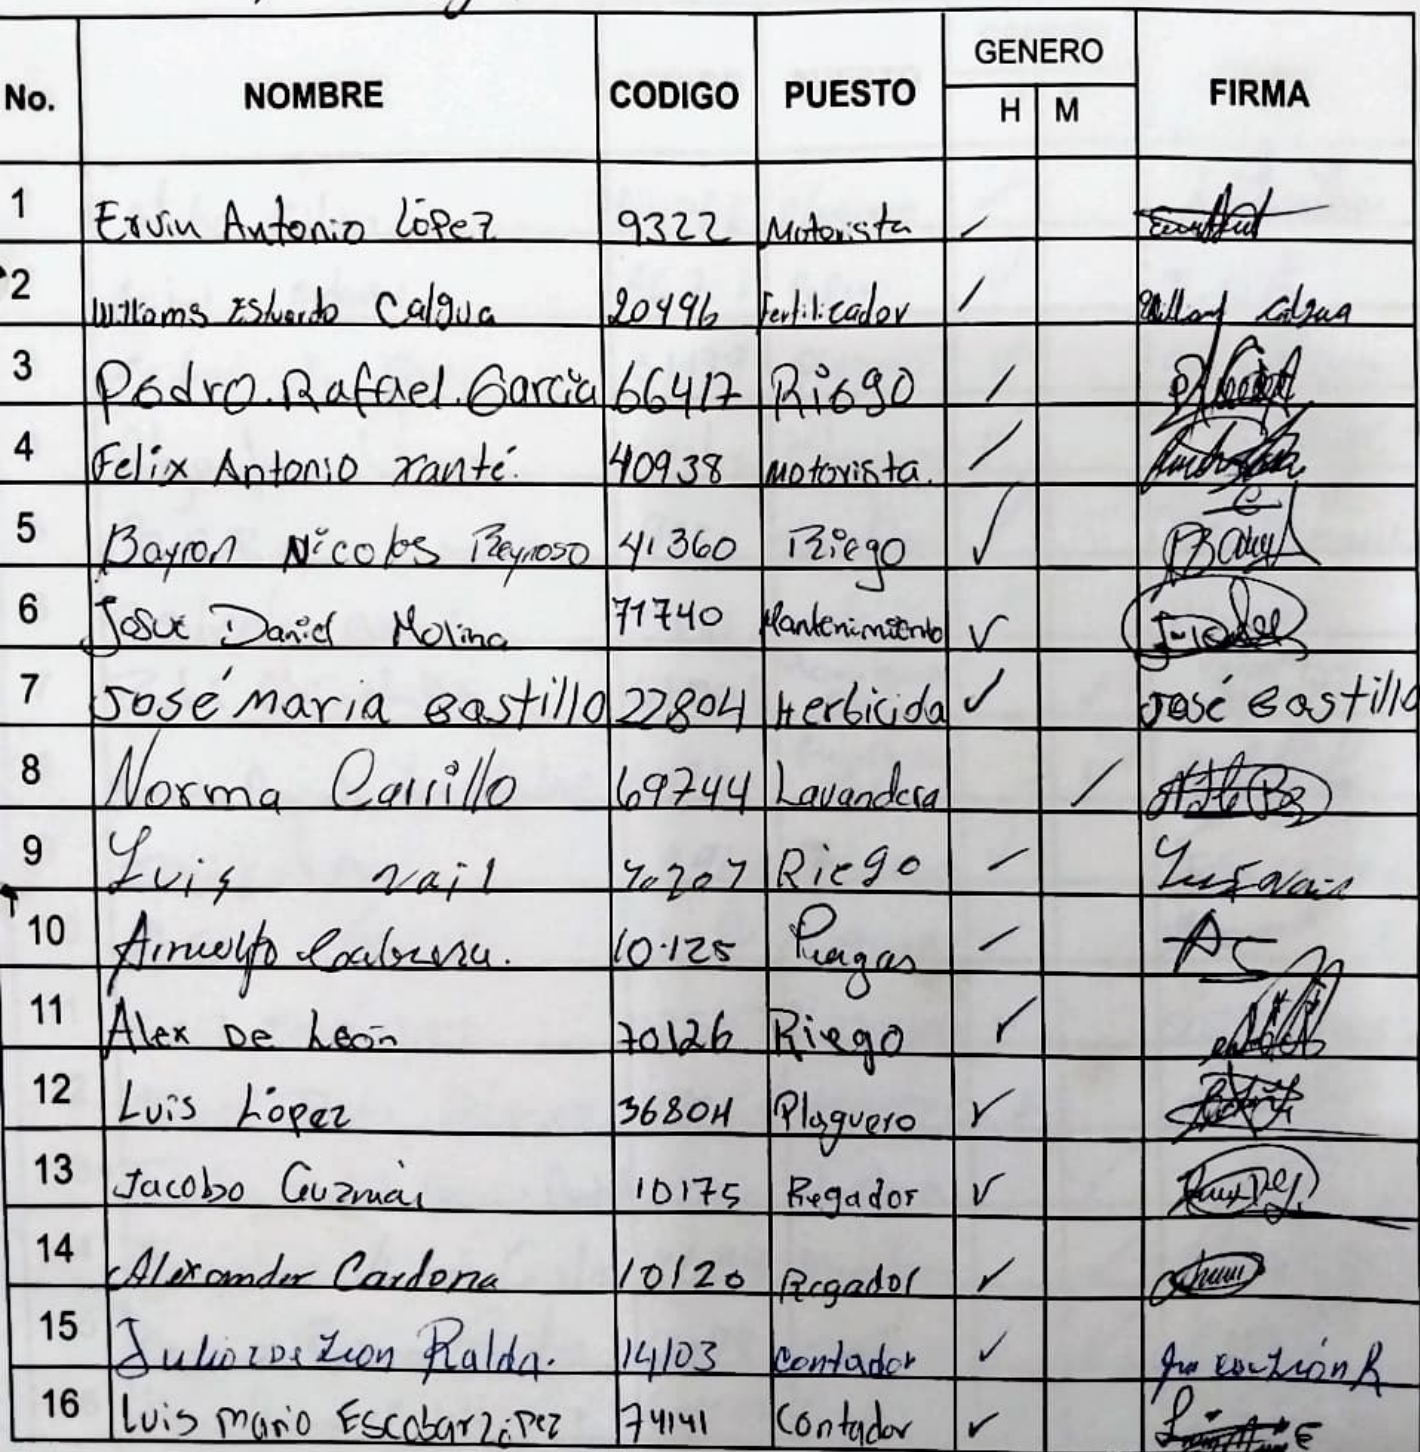 No. NOMBRE CODIGO PUESTO GENERO H M FIRMA
1 Ervin Antonio López 9322 Motorista
2 Williams Estuardo Calgua 20496 Fertilicador Calgua
3 Pedro.Rafael.Garcia 66417 Riego
4 Felix Antonio xanté. 40938 Motorista.
5 Bayron Nicolas Reynoso 41360 Riego
6 Josue Daniel Molina 71740 Mantenimiento
7 José maria castillo 22804 Herbicida José castillo
8 Norma Carrillo 69744 Lavandera
9 Luis vail 70207 Riego Luis vail
10 Arnulfo Cabrera. 10125 Plagas
11 Alex De León 70126 Riego
12 Luis López 36804 Plaguero
13 Jacobo Guzmán 10175 Regador
14 Alexander Cardona 10120 Regador
15 Julio De León Ralda. 14103 contador
16 Luis Mario Escobar López 74141 Contador